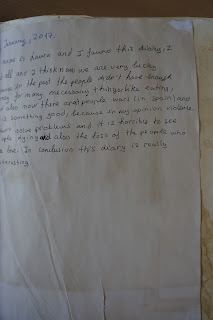 January, 2017.
name is Laura and I found this diary. I
all and I think now we are very lucky
in the past the people didn't have enough
for many necessary things like eating,
also now there are people wars (in Spain) and
is something good, because in my opinion violence
solve problems and it is horrible to see
people dying and also the loss of the people who
love. In conclusion this diary is really
interesting.